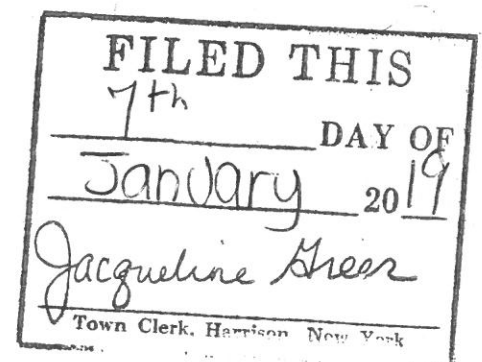 FILED THIS
7th
DAY OF
January 2019
Jacqueline Greer
Town Clerk, Harrison New York